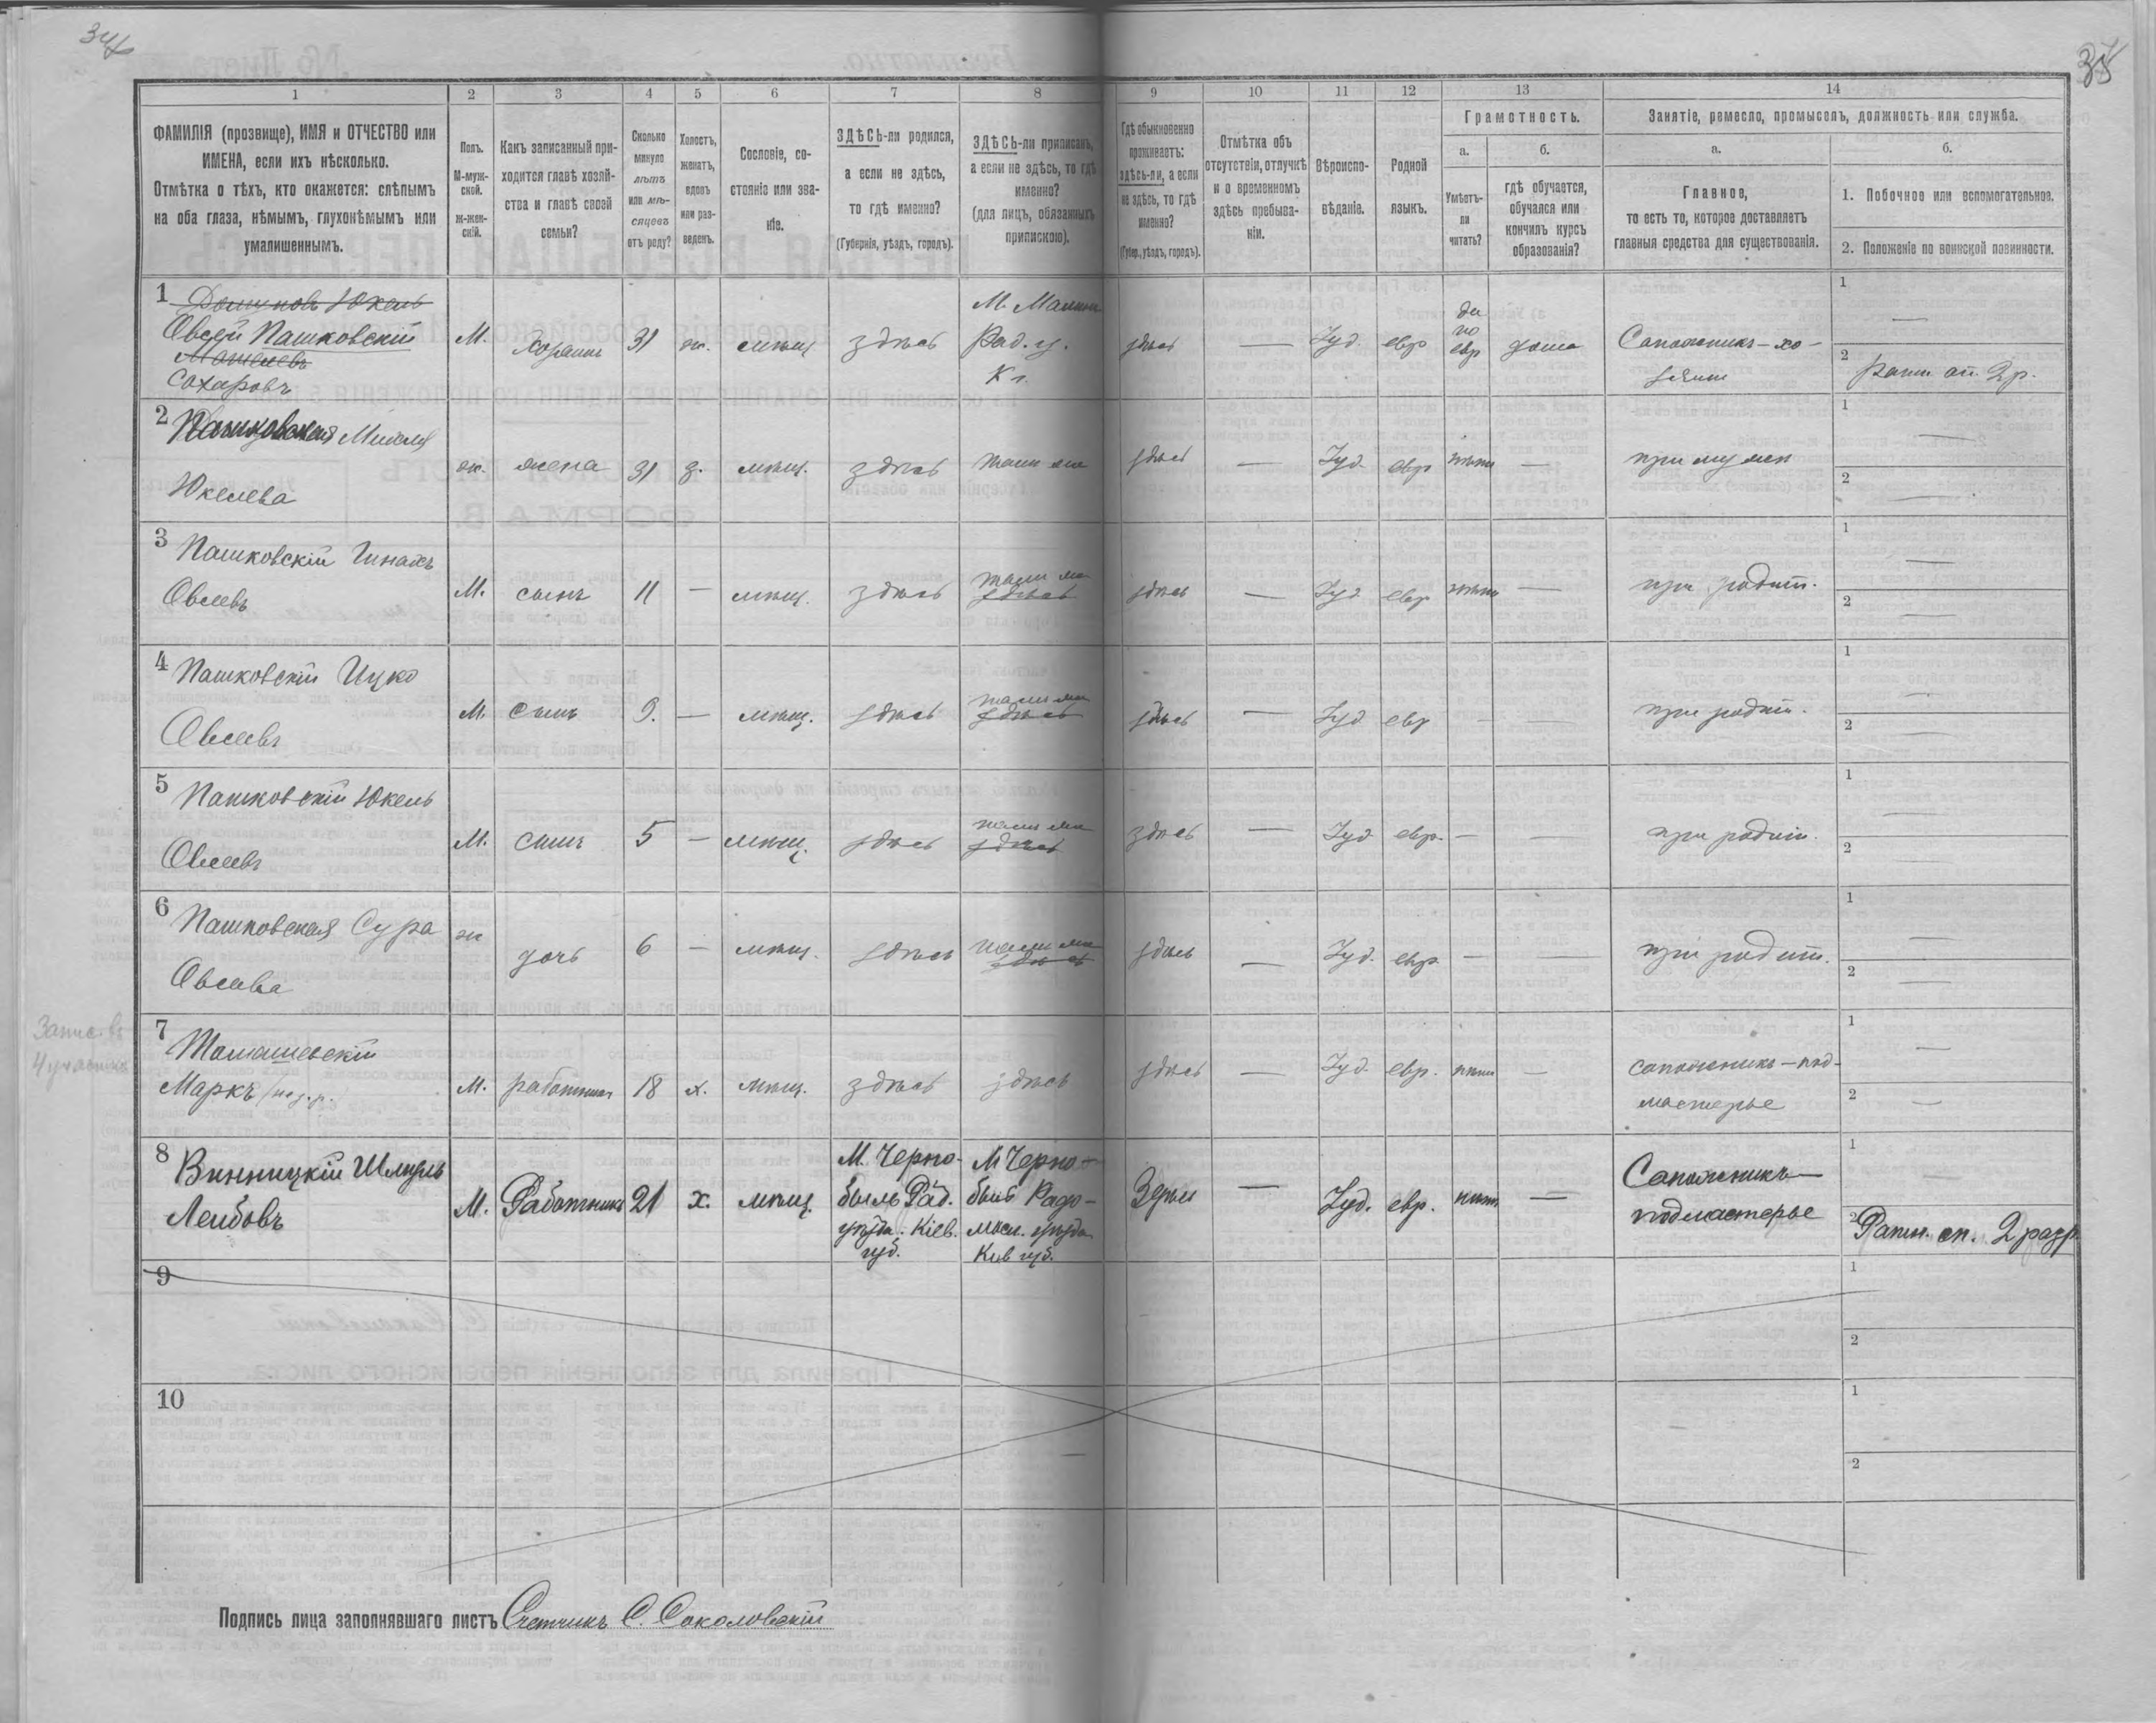 34
35
1 2 3 4 5 6 7 8 9 10 11 12 13 14
ФАМИЛІЯ (прозвище), ИМЯ и ОТЧЕСТВО или
ИМЕНА, если ихъ нѣсколько.
Отмѣтка о тѣхъ, кто окажется: слѣпымъ
на оба глаза, нѣмымъ, глухонѣмымъ или
умалишеннымъ.
Полъ.
М-муж-
ской.
ж-жен-
скій.
Какъ записанный при-
ходится главѣ хозяй-
ства и главѣ своей
семьи?
Сколько
минуло
лѣтъ
или мѣ-
сяцевъ
отъ роду?
Холостъ,
женатъ,
вдовъ
или раз-
веденъ.
Сословіе, со-
стояніе или зва-
ніе.
ЗДѢСЬ-ли родился,
а если не здѣсь,
то гдѣ именно?
(Губернія, уѣздъ, городъ).
ЗДѢСЬ-ли приписанъ,
а если не здѣсь, то гдѣ
именно?
(для лицъ, обязанныхъ
припискою).
Гдѣ обыкновенно
проживаетъ:
здѣсь-ли, а если
не здѣсь, то гдѣ
именно?
(Губер., уѣздъ, городъ).
Отмѣтка объ
отсутствіи, отлучкѣ
и о временномъ
здѣсь пребыва-
ніи.
Вѣроиспо-
вѣданіе.
Родной
языкъ.
Грамотность.
а.
Умѣетъ-
ли
читать?
б.
гдѣ обучается,
обучался или
кончилъ курсъ
образованія?
Занятіе, ремесло, промыселъ, должность или служба.
а.
Главное,
то есть то, которое доставляетъ
главныя средства для существованія.
б.
1. Побочное или вспомогательное.
2. Положеніе по воинской повинности.
1 Юкель
Овсей Пашковскій
Сахаровъ
М. 31 ж. мѣщ здѣсь
М. Малинъ
Рад. у.
К г.
здѣсь — Іуд. евр
да
по
евр
дома
Сапожникъ – хо-
зяинъ
1 —
2 Ратн оп. 2 р.
2 Пашковская
Юкелева
ж. жена 31 з. мѣщ. здѣсь тамъ же здѣсь — Іуд. евр нѣтъ — при мужѣ
1 —
2 —
3 Пашковскій
Овсеевъ
М. сынъ 11 — мѣщ. здѣсь тамъ же здѣсь здѣсь — Іуд евр нѣтъ — при родит.
1 —
2 —
4 Пашковскій Ицко
Овсеевъ
М. сынъ 9. — мѣщ. здѣсь тамъ же здѣсь здѣсь — Іуд евр — — при родит.
1 —
2 —
5 Пашковскій Юкель
Овсеевъ
М. сынъ 5 — мѣщ. здѣсь тамъ же здѣсь здѣсь — Іуд евр. — — при родит.
1 —
2 —
6 Пашковская Сура
Овсеева
ж дочь 6 — мѣщ. здѣсь тамъ же здѣсь здѣсь — Іуд. евр. — — при родит.
1 —
2 —
Запис. въ
4 участкѣ
7
Маркъ
М. работникъ 18 х. мѣщ. здѣсь здѣсь здѣсь — Іуд. евр. нѣтъ —
сапожникъ – под-
мастерье
1 —
2 —
8 Винницкій Шмуль
Лейбовъ
М. Работникъ 21 х. мѣщ.
М. Черно-
быль Рад.
уѣзда. Кіев.
губ.
М Черно-
быль Радо-
мысл. уѣзда
Кіев губ.
Здѣсь — Іуд. евр. нѣтъ —
Сапожникъ –
подмастерье
1 —
2 Ратн. оп. 2 разр.
9
1
2
10
1
2
Подпись лица заполнявшаго листъ Счетчикъ С. Соколовскій